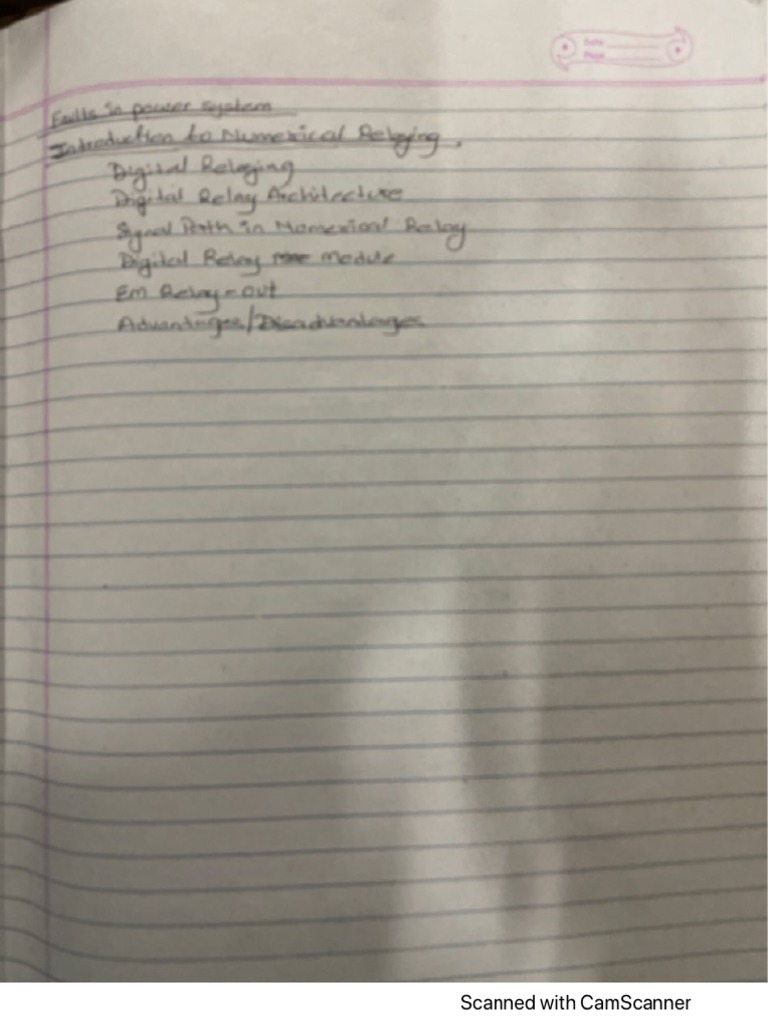 Date
Page
Faults in power system
Introduction to Numerical Relaying.
Digital Relaying
Digital Relay Architecture
Signal Path in Numerical Relay
Digital Relay module
Em Relay - out
Advantages/Disadvantages
Scanned with CamScanner